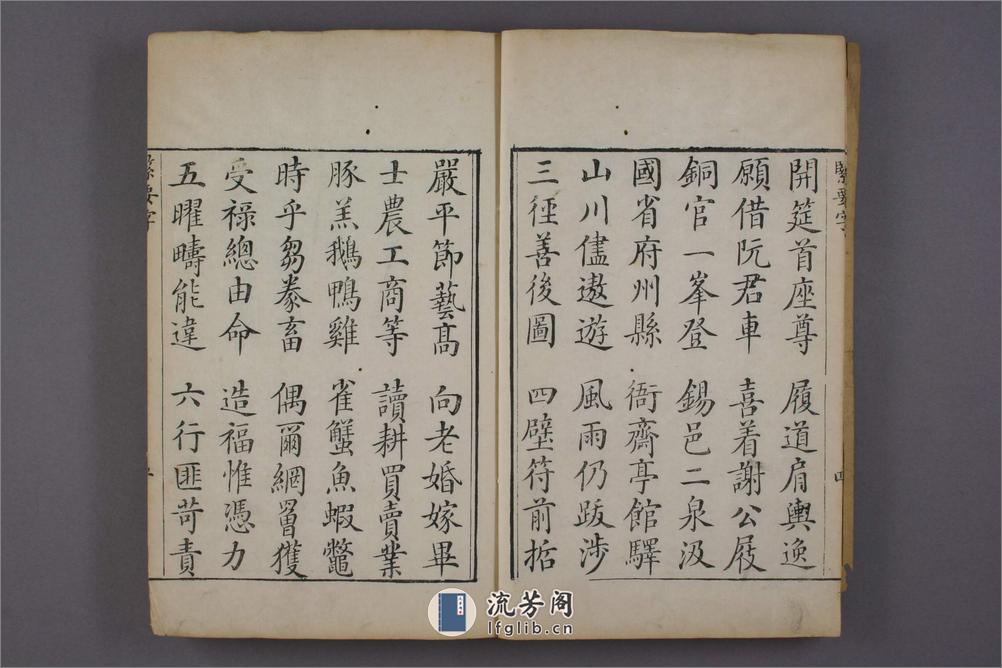 緊要字
開筵首座尊 履道肩輿逸
願借阮君車 喜着謝公屐
銅官一峯登 錫邑二泉汲
國省府州縣 衙齋亭館驛
山川儘遨遊 風雨仍跋涉
三徑善後圖 四壁符前括
四
嚴平節藝高 向老婚嫁畢
士農工商等 讀耕買賣業
豚羔鵝鴨雞 雀蟹魚蝦鼈
時乎芻豢畜 偶爾網罶獲
受祿總由命 造福惟憑力
五曜疇能違 六行匪苛責
緊要字
流芳阁
lfglib.cn